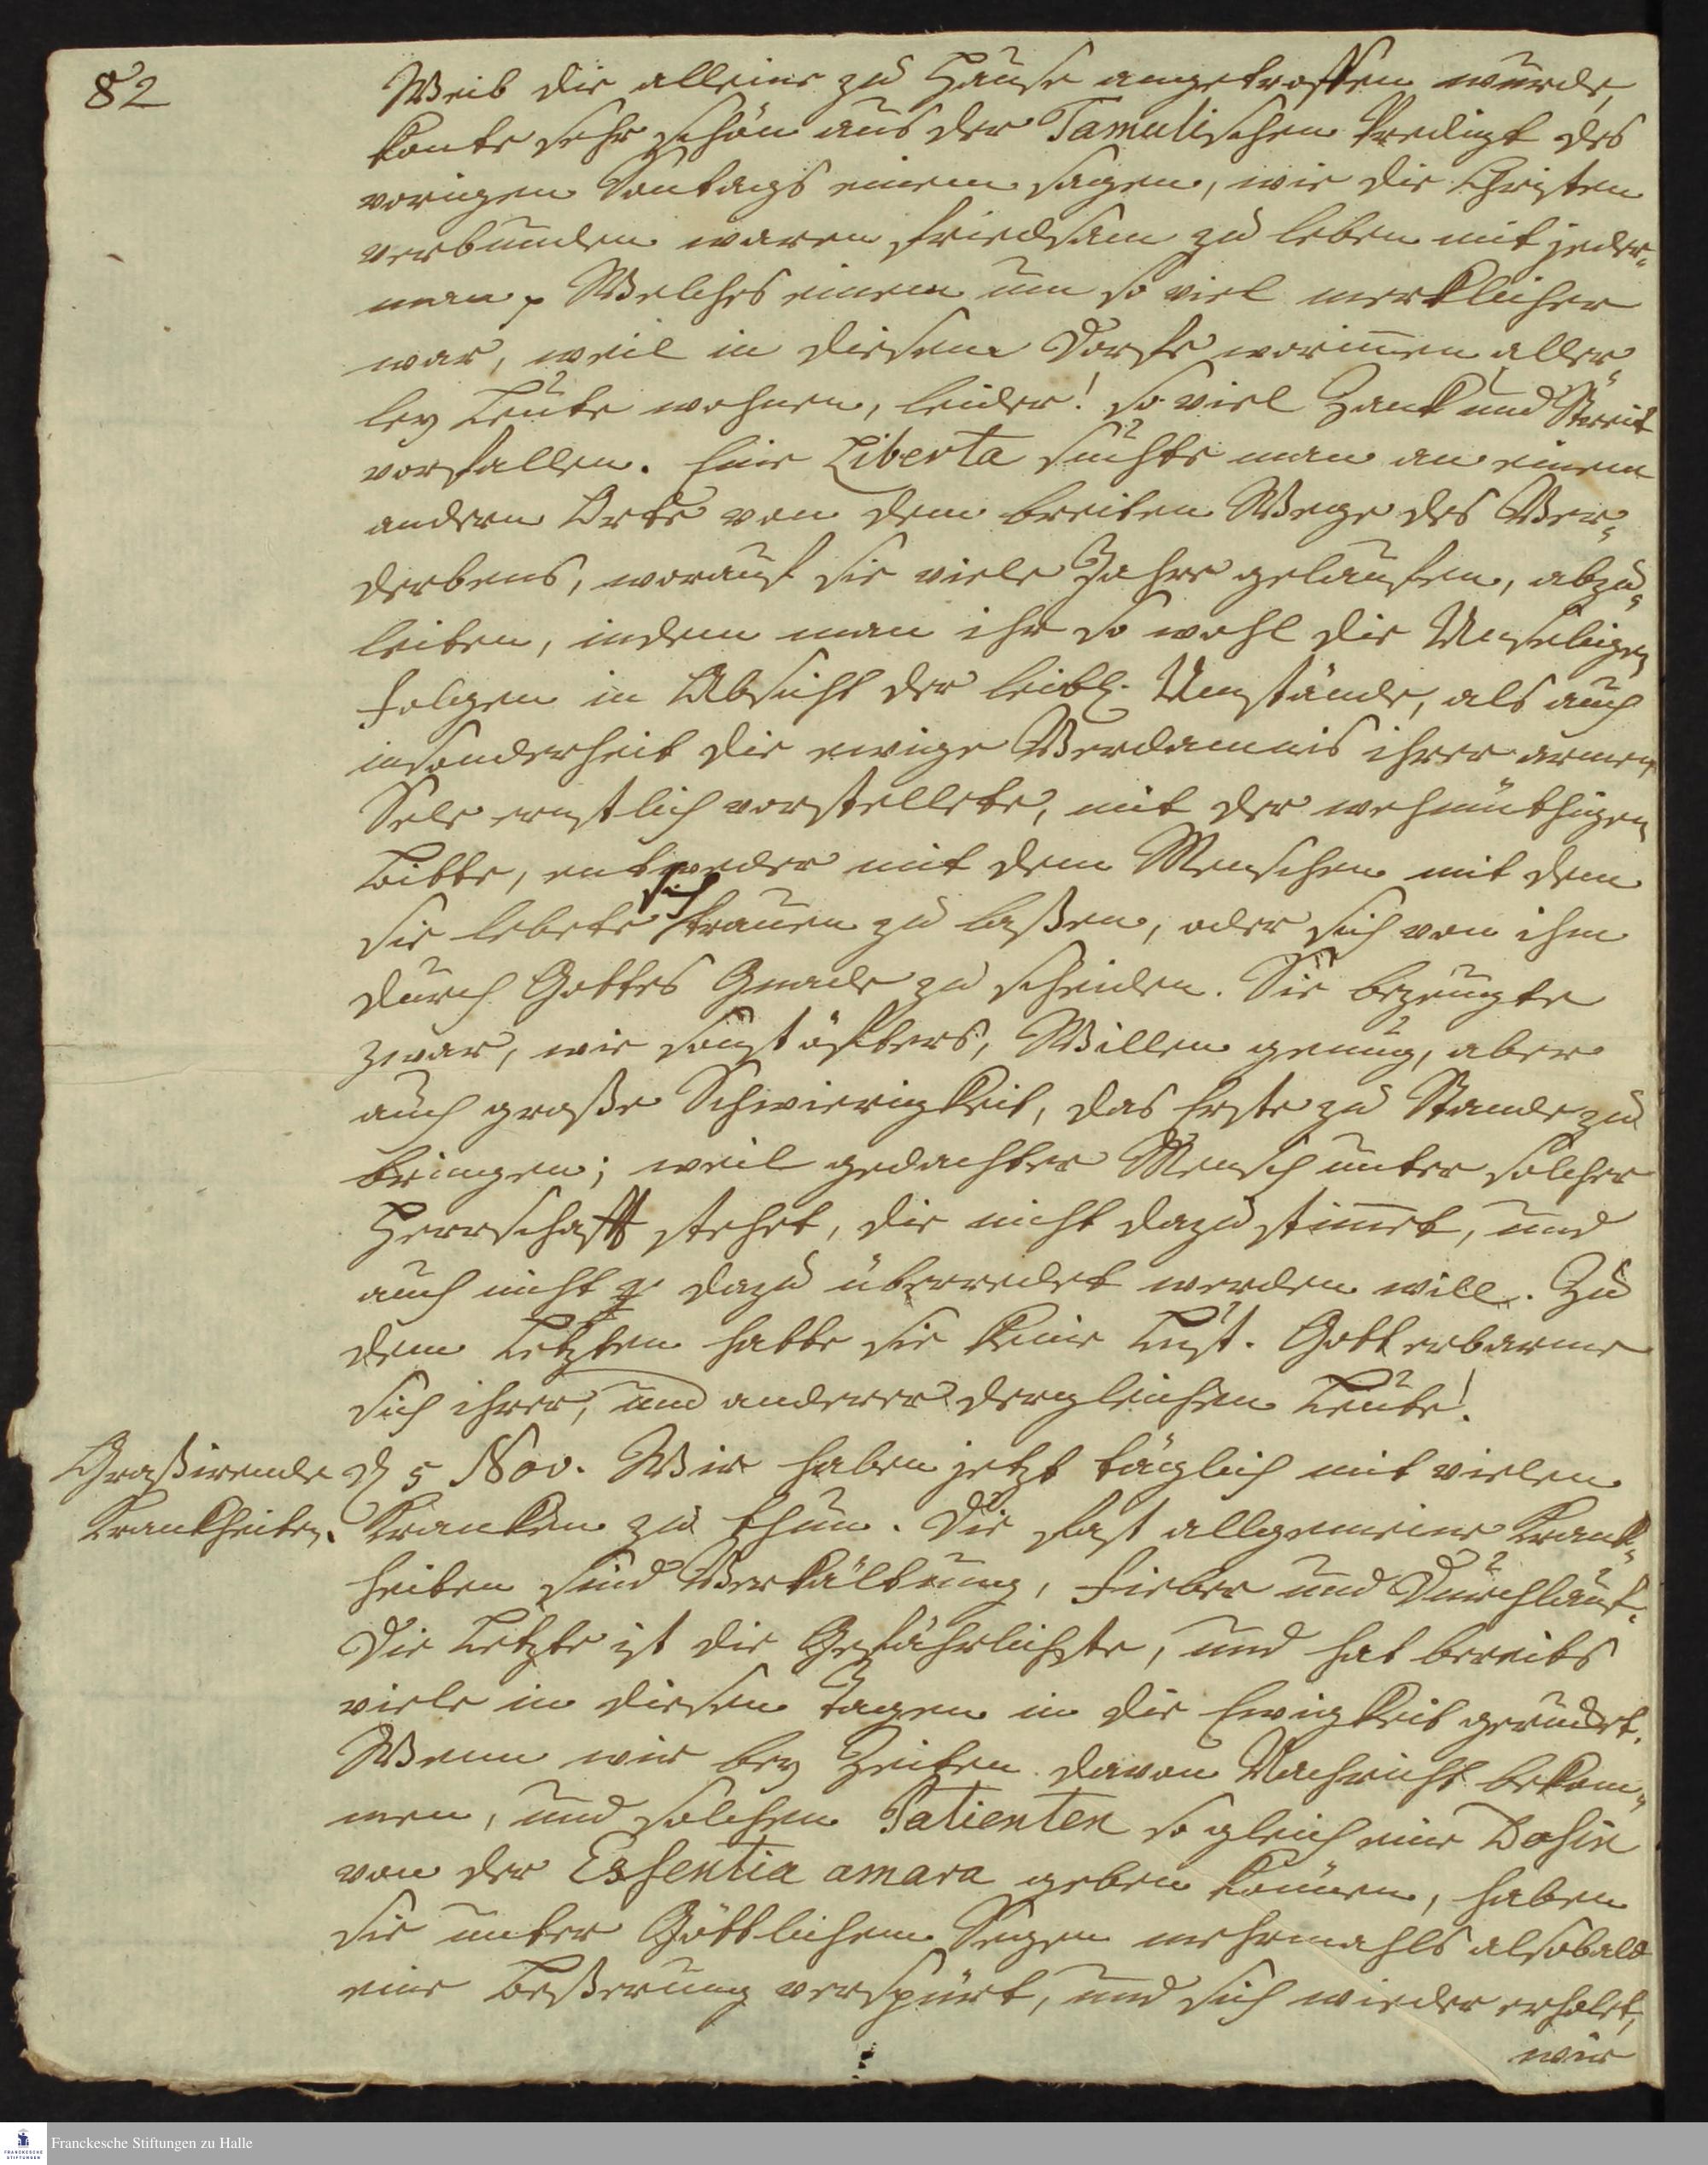 82
Weib die alleine zu Hause angetroffen wurde,
konte sehr schön aus der Tamulischen Predigt des
vorigen Sontags einem sagen, wie die Christen
verbunden waren friedsam zu leben mit jeder-
man. Welches einem um so viel merklicher
war, weil in diesem Dorfe worinnen aller-
ley Leute wohnen, leider! so viel Zank und Streit
vorfallen. Eine Liberta suchte man an einem
andern Orte von dem breiten Wege des Ver-
derbens, worauf sie viele Jahre gelaufen, abzu-
leiten, indem man ihr so wohl die Unseligen
Folgen in Absicht der leibl. Umstände, als auch
insonderheit die ewige Verdamnis ihrer armen
Sele ernstlich vorstellete, mit der wehmüthigen
Bitte, entweder mit dem Menschen mit dem
sie lebete sich trauen zu laßen, oder sich von ihm
durch Gottes Gnade zu scheiden. Sie bezeugte
zwar, wie sonst öffters, Willen genug, aber
auch große Schwierigkeit, das Erste zu Stande zu
bringen; weil gedachter Mensch unter solcher
Herrschafft stehet, die nicht dazu stimmet, und
auch nicht dazu überredet werden will. Zu
dem Letzten hatte sie keine Lust. Gott erbarme
sich ihrer, und anderer dergleichen Leute!
Graßirende
Krankheiten.
d 5 Nov. Wir haben jetzt täglich mit vielen
Kranken zu thun. Die fast allgemeine Krank-
heiten sind Verkältung, Fieber und Durchlauf.
Die Letzte ist die Gefährlichste, und hat bereits
viele in diesen Tagen in die Ewigkeit gerücket.
Wenn wir bey Zeiten davon Nachricht bekom-
men, und solchen Patienten so gleich eine Dosin
von der Essentia amara geben können, haben
sie unter Göttlichem Segen mehrmahls alsobald
eine Beßerung verspürt, und sich wieder erholet,
wir
Franckesche Stiftungen zu Halle